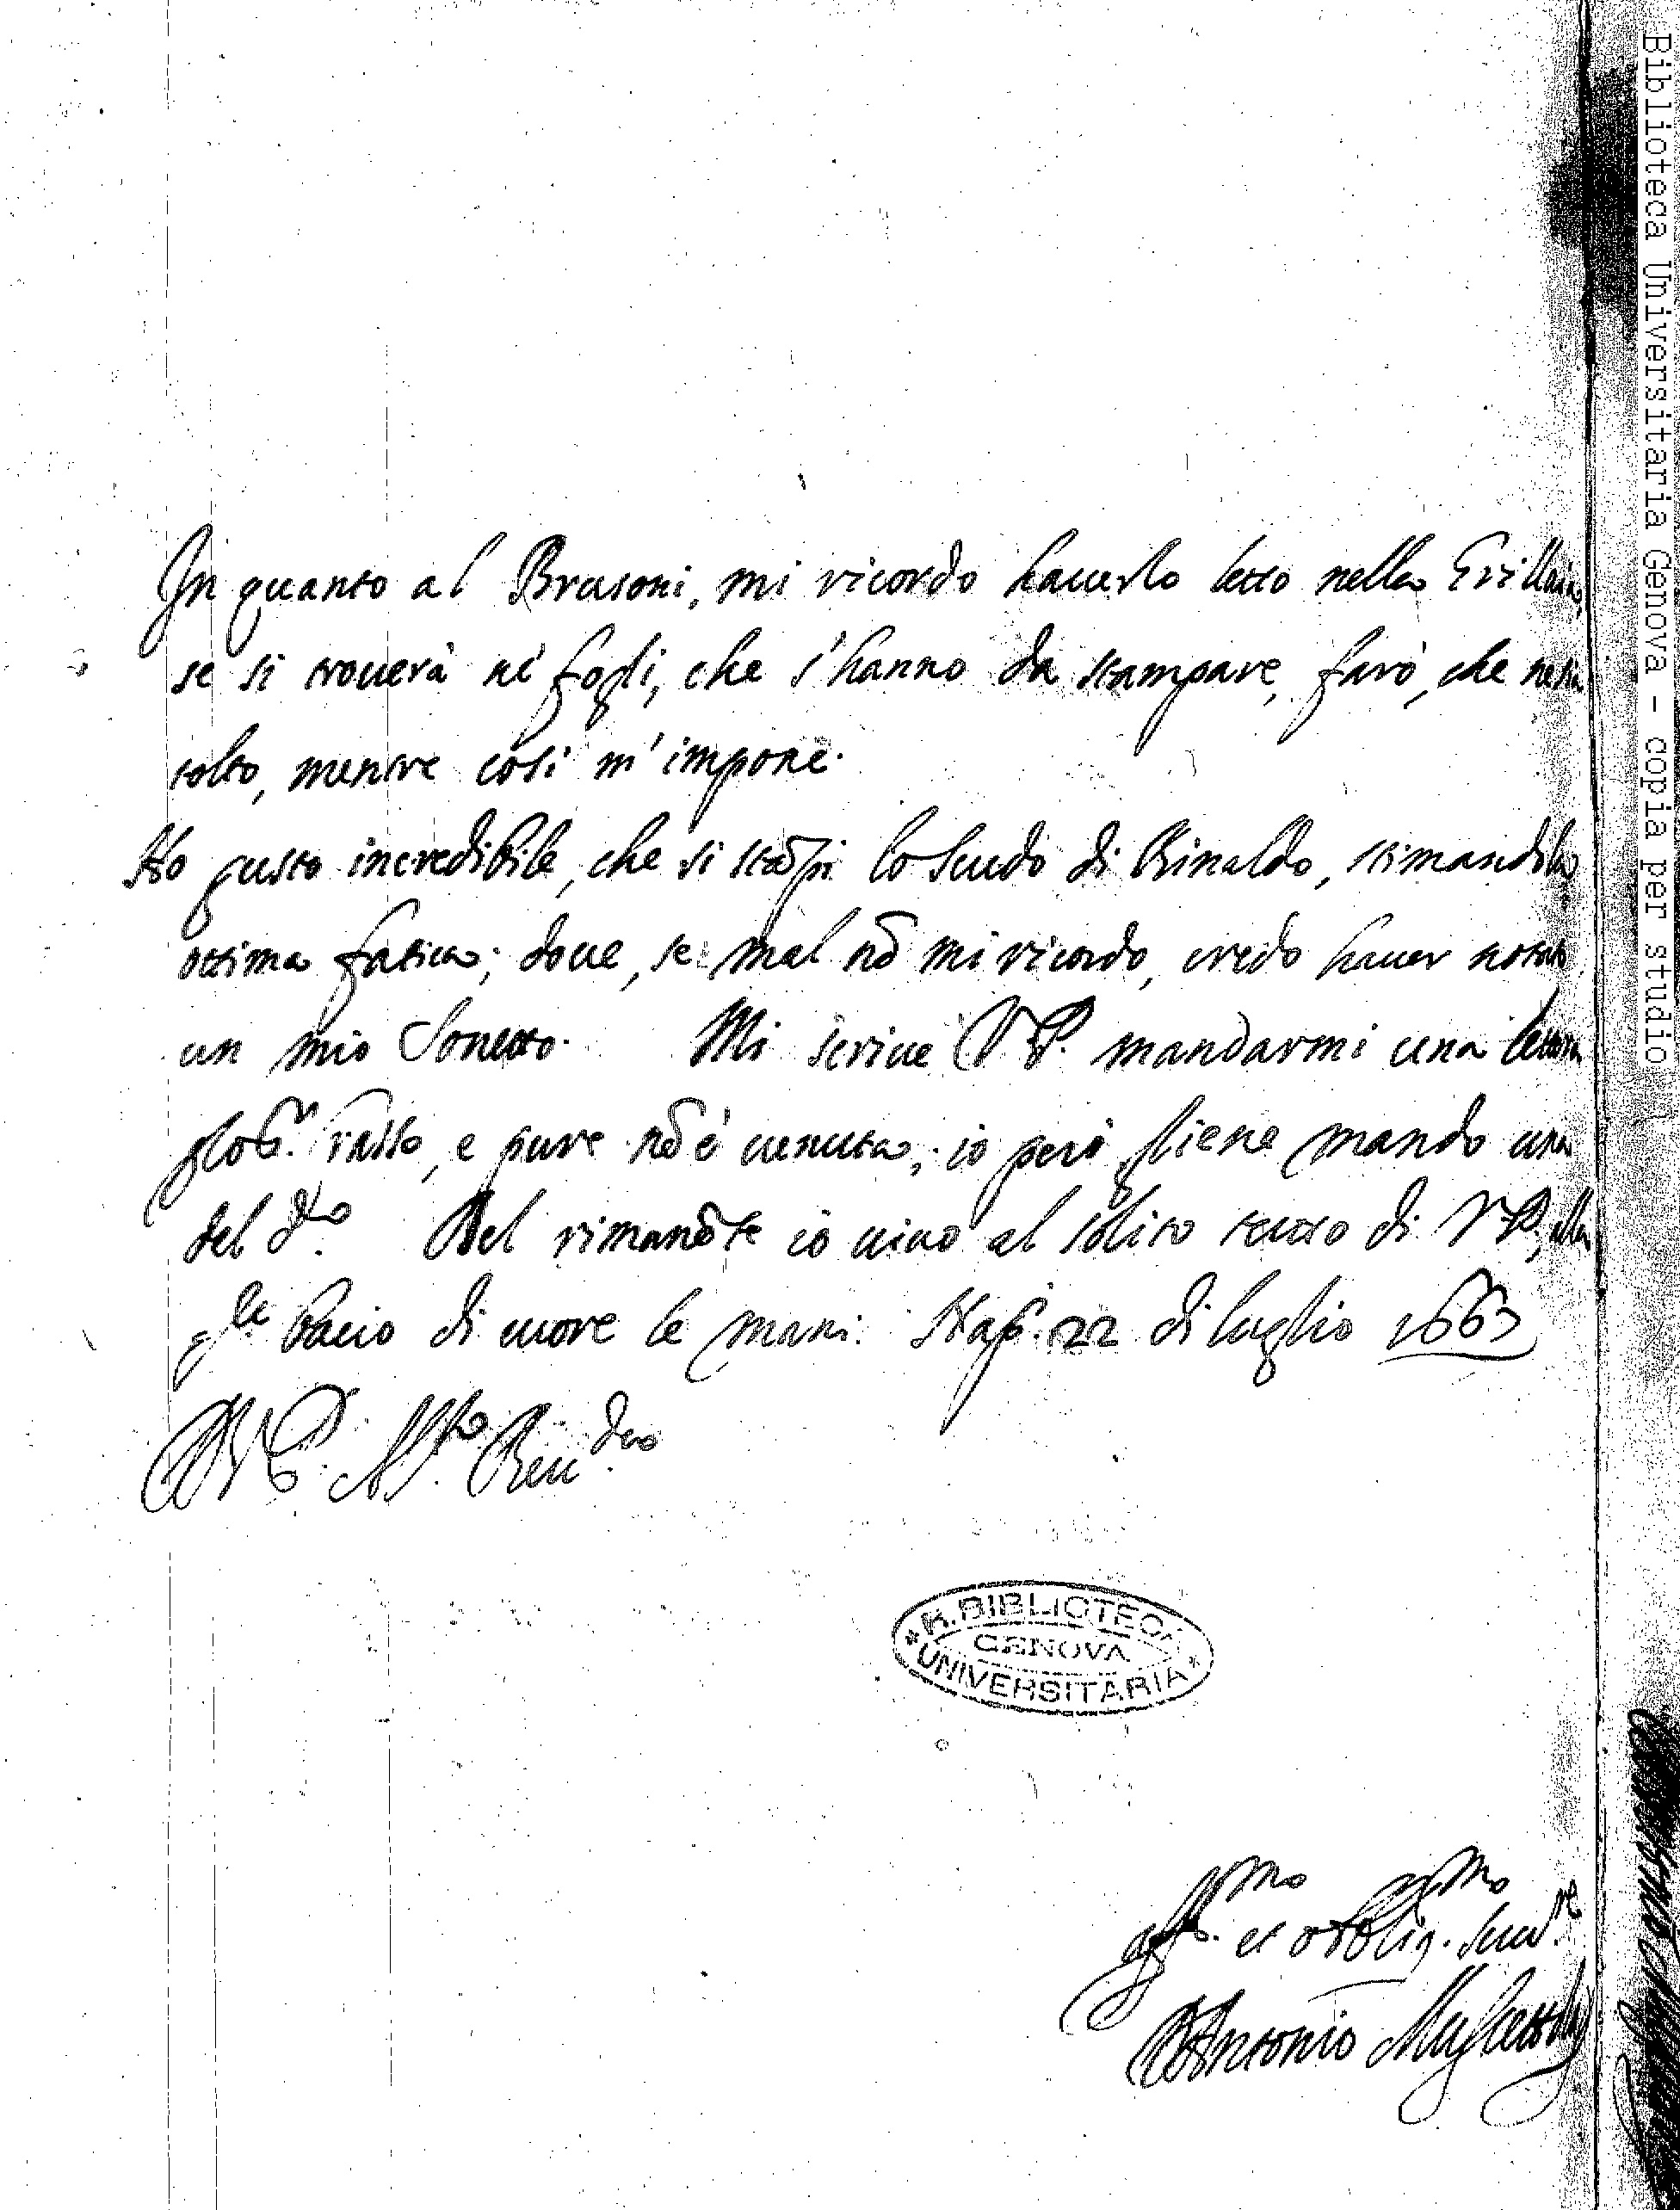 In quanto al Brusoni, mi ricordo hauerlo letto nella Grillaia,
se si trouerà ne' fogli, che s'hanno da stampare, farò, che ne sia
tolto, mentre così m'impone.
Ho gusto incredibile, che si stāpi lo Scudo di Rinaldo, stimandola
ottima fatica; doue, se mal nō mi ricordo, credo hauer notato
un mio Sonetto. Mi scriue V.P. mandarmi una lettera
Tasso, e pure nō è uenuta; io però gliene mando una
del d.to Del rimanēte io uiuo al solito tutto di V.P., alla
q.le bacio di cuore le mani. Nap. 22 di luglio 1663
D. V. P. M.to Reu.da
R. BIBLIOTECA
GENOVA
UNIVERSITARIA
aff.mo et obblig.mo Seru.re
Antonio Muscettola
Biblioteca Universitaria Genova - copia per studio